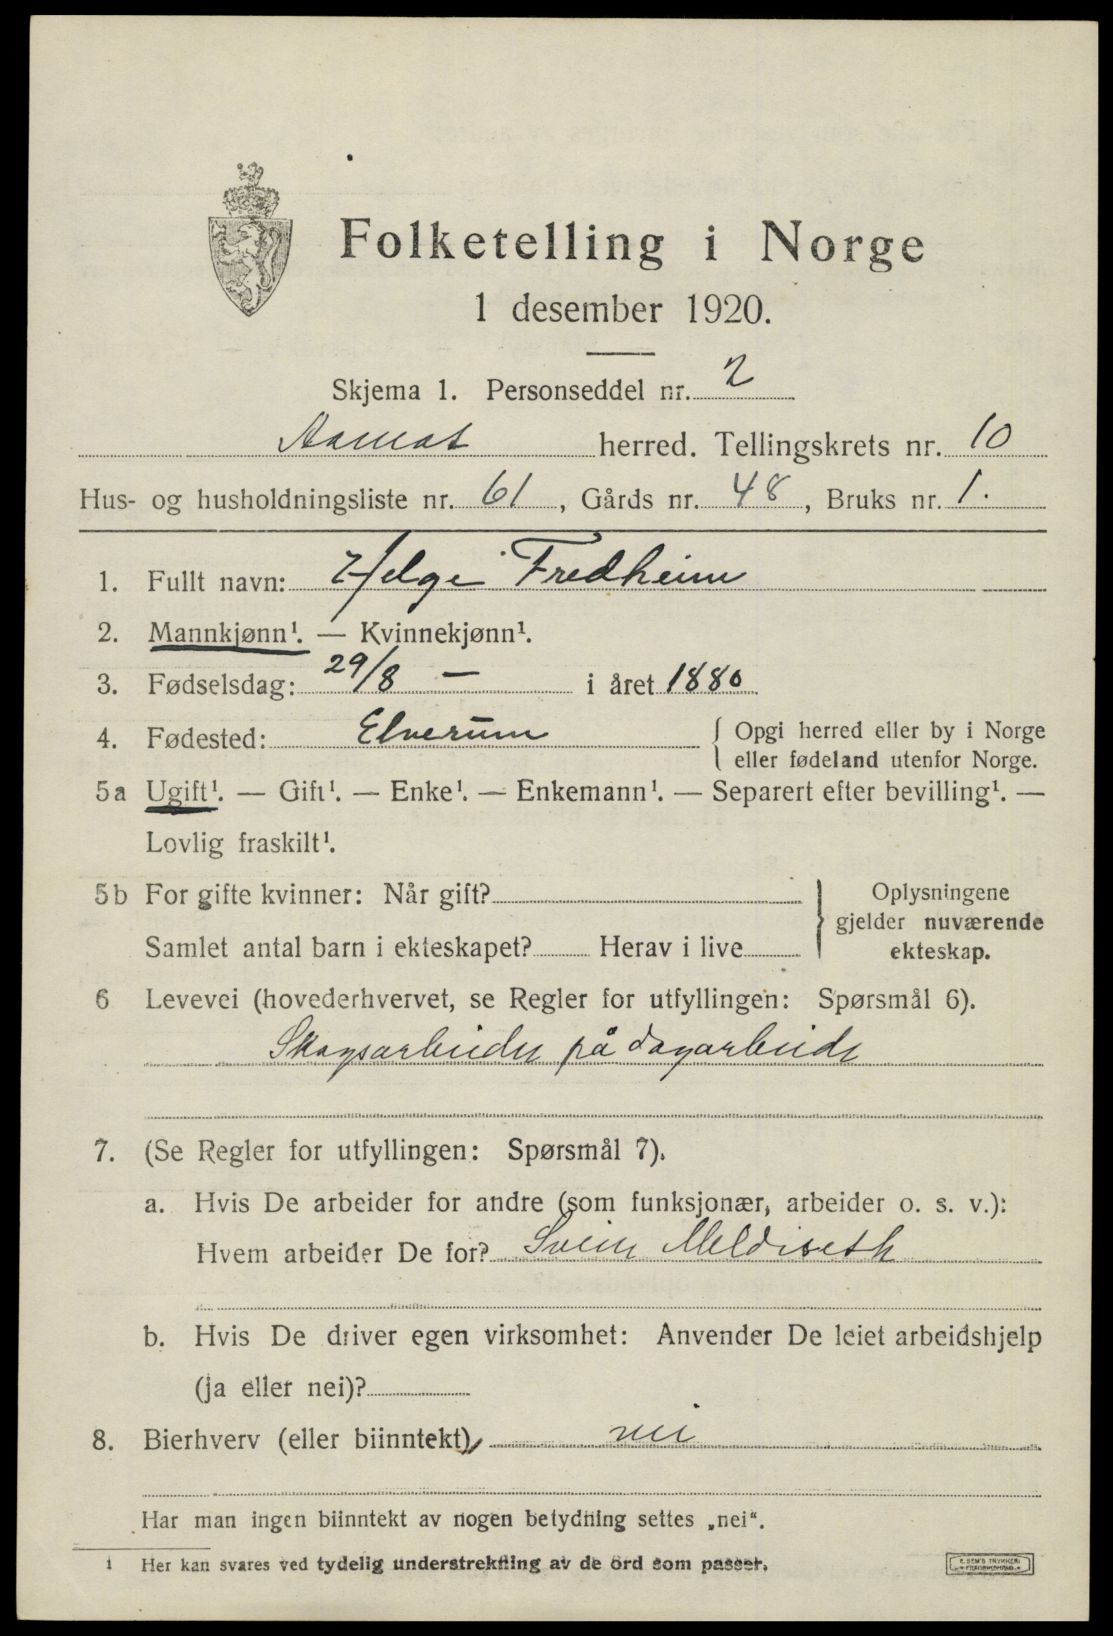 Folketelling i Norge
1 desember 1920.
Skjema 1. Personseddel nr. 2
Aamot herred. Tellingskrets nr. 10
Hus- og husholdningsliste nr. 61, Gårds nr. 48, Bruks nr. 1.
1. Fullt navn: Helge Fredheim
2. Mannkjønn¹. — Kvinnekjønn¹.
3. Fødselsdag: 29/8 — i året 1880
4. Fødested: Elverum { Opgi herred eller by i Norge
eller fødeland utenfor Norge.
5a Ugift¹. — Gift¹. — Enke¹. — Enkemann¹. — Separert efter bevilling¹. —
Lovlig fraskilt¹.
5b For gifte kvinner: Når gift?
Samlet antal barn i ekteskapet? Herav i live
} Oplysningene
gjelder nuværende
ekteskap.
6 Levevei (hovederhvervet, se Regler for utfyllingen: Spørsmål 6).
Skogsarbeider på dagarbeide
7. (Se Regler for utfyllingen: Spørsmål 7).
a. Hvis De arbeider for andre (som funksjonær, arbeider o. s. v.):
Hvem arbeider De for? Svein Meldiseth
b. Hvis De driver egen virksomhet: Anvender De leiet arbeidshjelp
(ja eller nei)?
8. Bierhverv (eller biinntekt) nei
Har man ingen biinntekt av nogen betydning settes „nei“.
1 Her kan svares ved tydelig understrekning av de ord som passer.